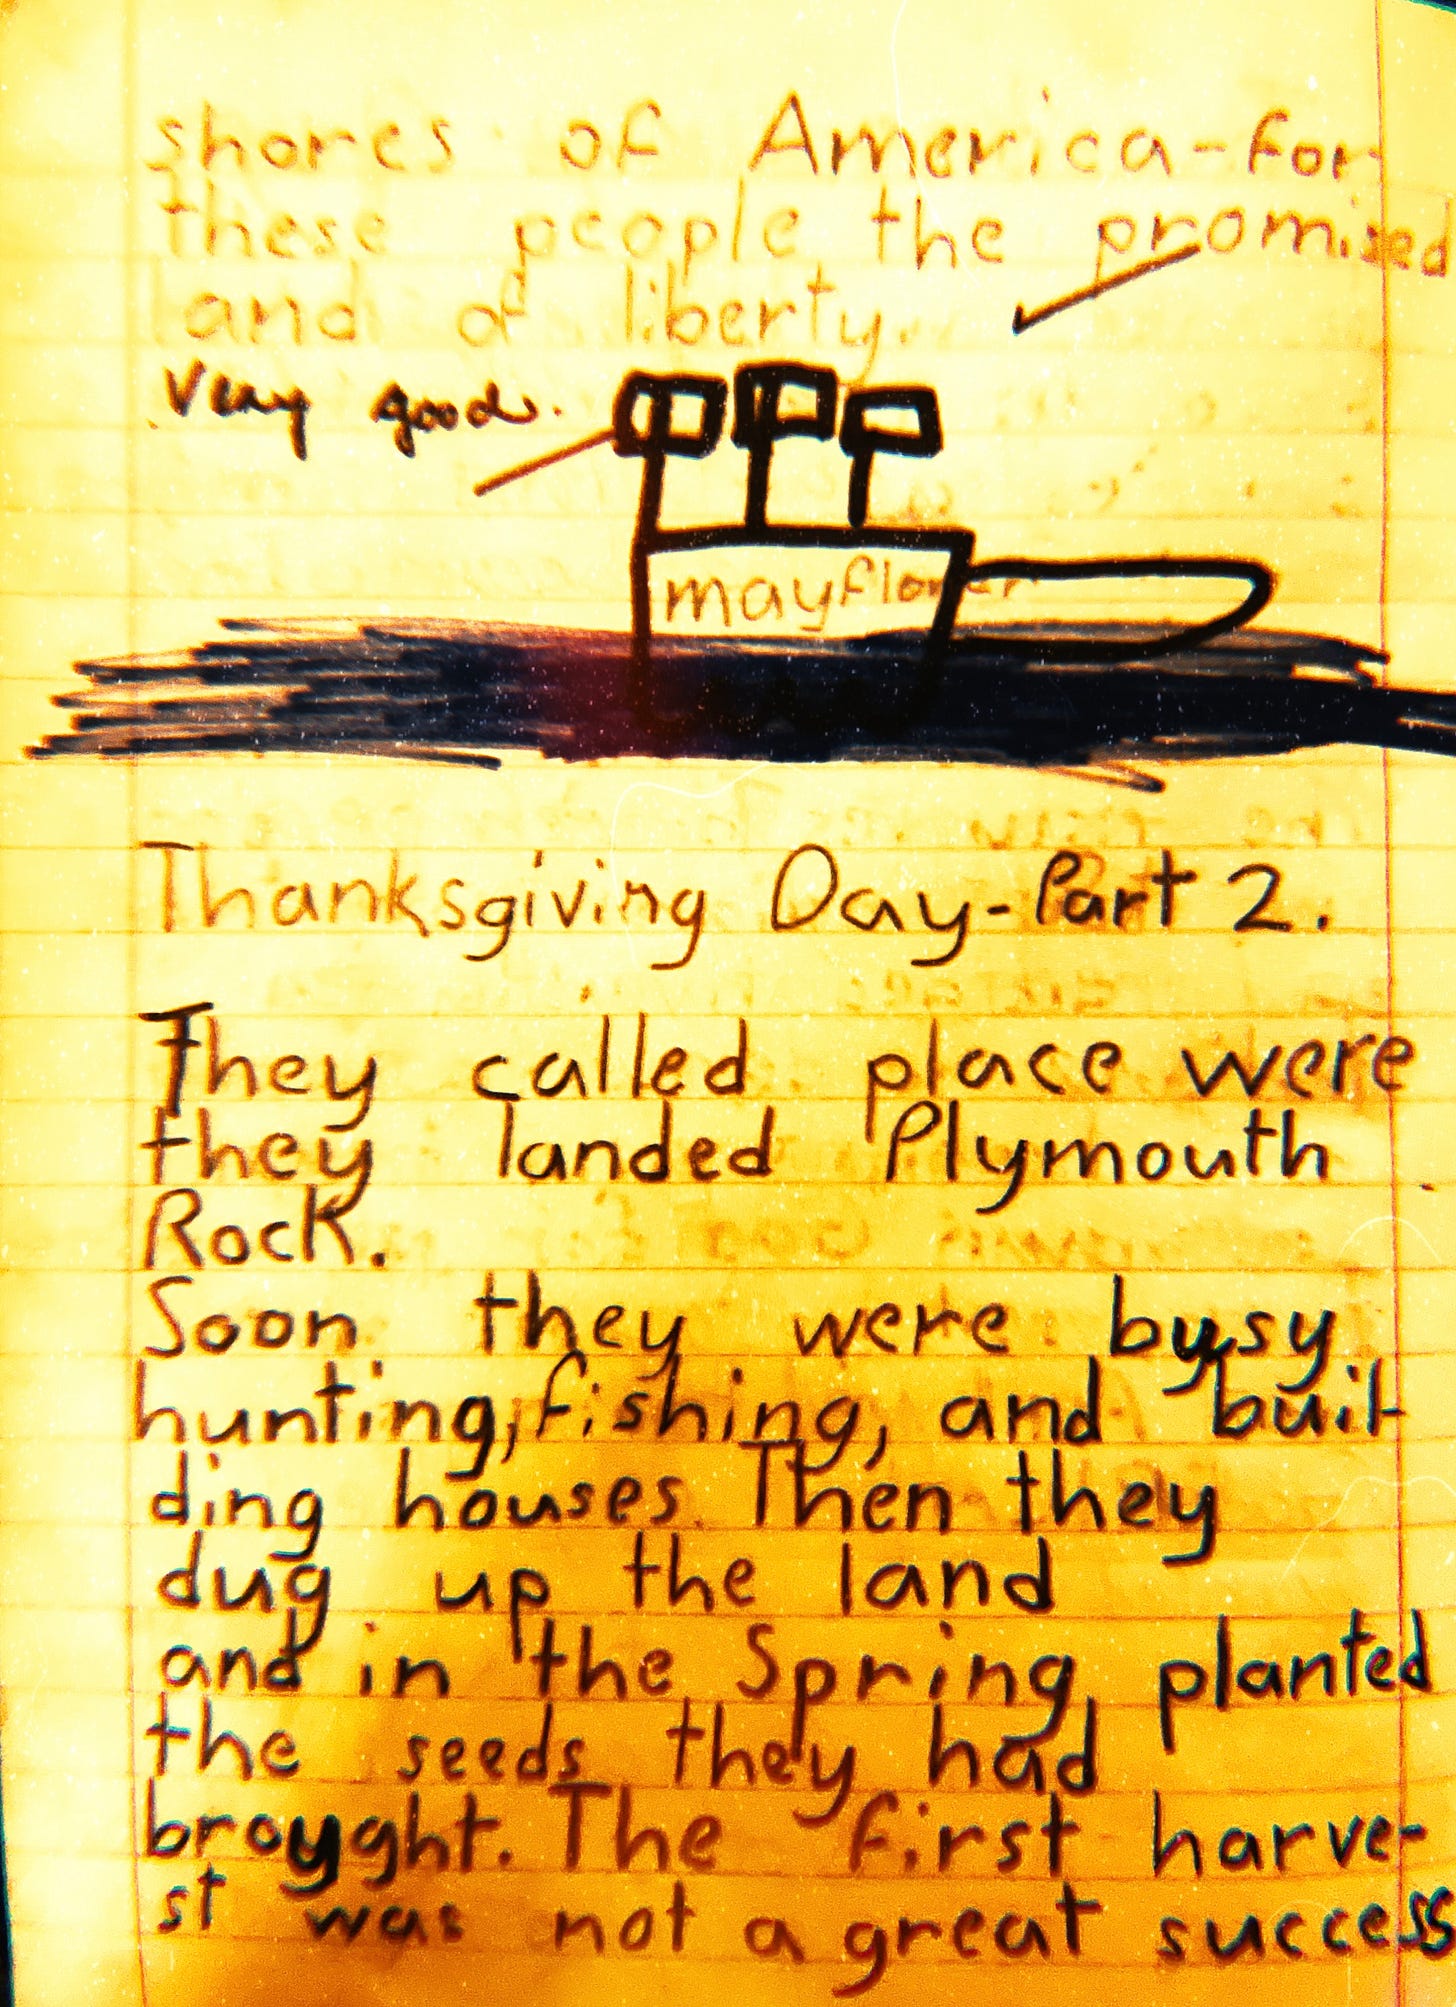 shores of America-for
these people the promised
land of liberty.
Very good.
mayflower
Thanksgiving Day-Part 2.
They called place were
they landed Plymouth
Rock.
Soon they were busy
hunting, fishing, and buil-
ding houses. Then they
dug up the land
and in the Spring, planted
the seeds they had
broyght. The first harve-
st was not a great success